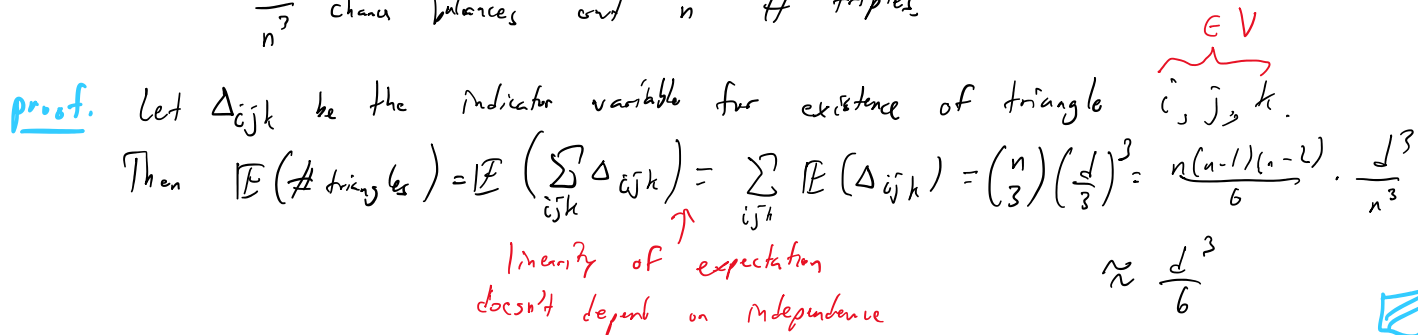 /n³ chance balances out n³ # triples
∈ V
proof. Let Δijk be the indicator variable for existence of triangle i, j, k.
Then 𝔼(# triangles) = 𝔼(∑ijk Δijk) = ∑ijk 𝔼(Δijk) = (n choose 3)(d/3)³ = n(n-1)(n-2)/6 · d³/n³
linearity of expectation
doesn't depend on independence
≈ d³/6